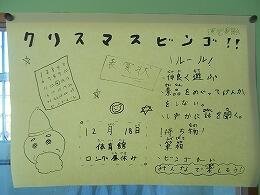 クリスマスビンゴ!!
表賞状
12月18日
体育館
ロング昼休み
ルール!
仲良く遊ぶ
景品をめぐってけんか
をしない。
しずかに話を聞く。
持ち物!
筆箱
みんなで楽しもう!